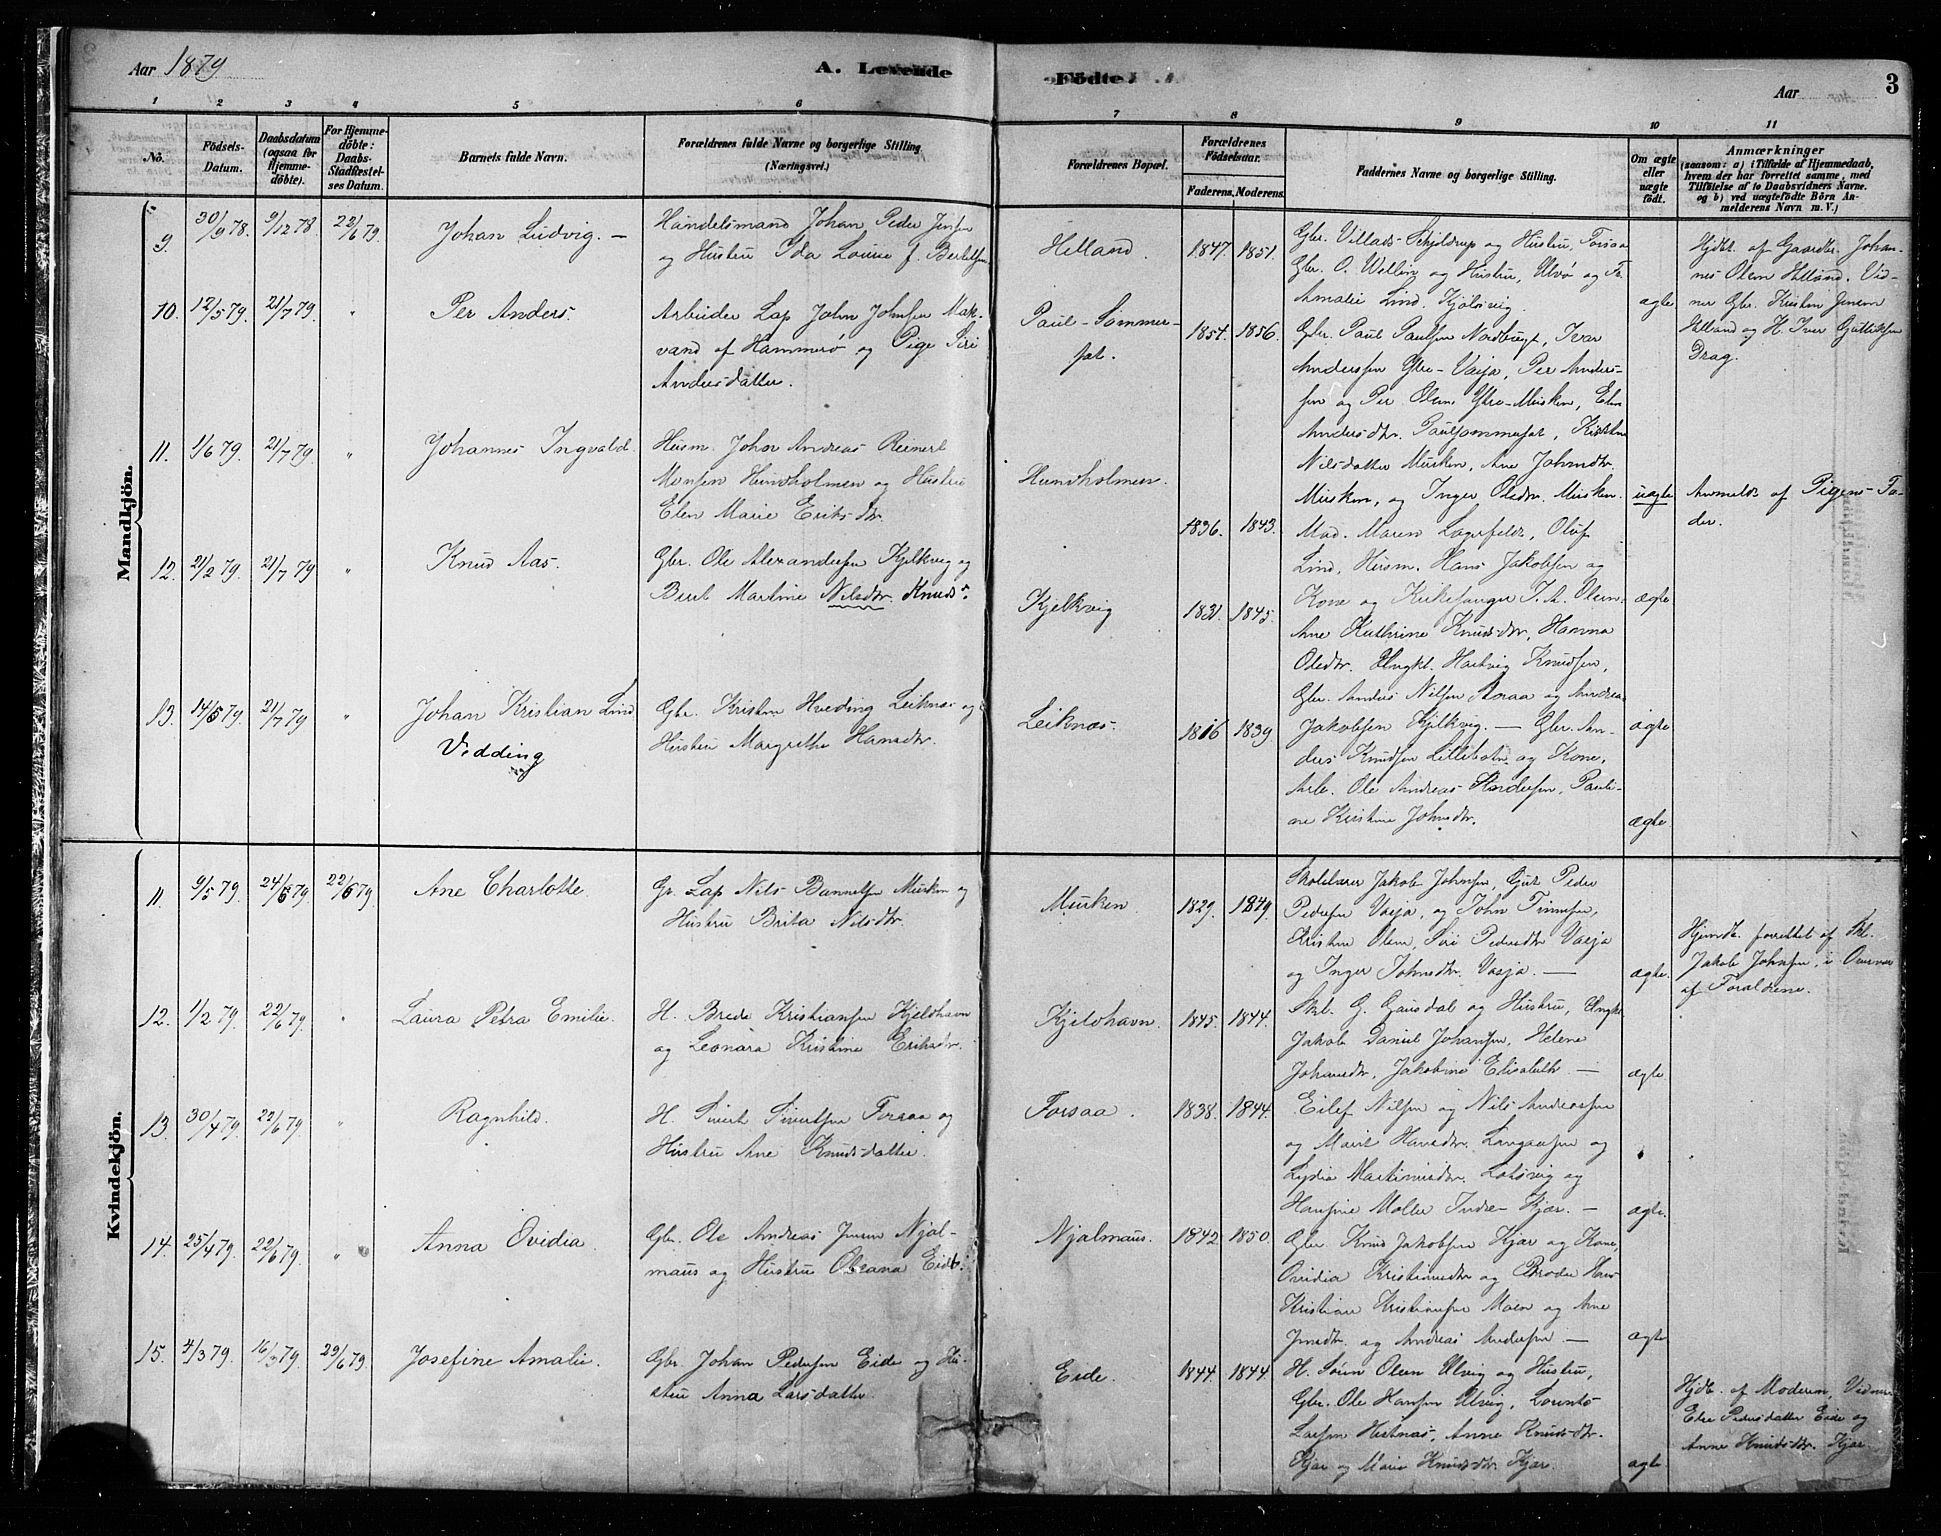 Aar 1879
A. Levende
Födte
Aar
3
1 2 3 4 5 6 7 8 9 10 11
No.
Födsels-
Datum.
Daabsdatum
(ogsaa for
Hjemme-
döbte).
For Hjemme-
döbte:
Daabs-
Stadfæstel-
ses Datum.
Barnets fulde Navn.
Forældrenes fulde Navne og borgerlige Stilling.
(Næringsvei.)
Forældrenes Bopæl.
Forældrenes
Födselsaar.
Faderens. Moderens.
Faddernes Navne og borgerlige Stilling.
Om ægte
eller
uægte
födt.
Anmærkninger
(saasom: a) i Tilfælde af Hjemmedaab,
hvem der har forrettet samme, med
Tilföielse af to Daabsvidners Navne.
og b) ved uægtefödte Börn An-
melderens Navn m. V.)
Mandkjön.
9. 30/9 78. 9/12 78 22/6 79. Johan Ludvig. —
Handelsmand Johan Peder Jensen
og Hustru Ida Louise f. Bertelsen
Helland. 1847. 1851.
Gbr. Villads Schjeldrup og Hustru, Forsaa
Gbr. O. Wellin og Hustru, Ulvø og Fr.
Amalie Lind. Kjølsvig. ægte
Hjdbt. af Gaardbr. Johan-
nes Olsen Helland. Vid-
ner Gbr. Kristen Jensen
Helland og H. Iver
Drag.
10. 12/5 79. 21/7 79. " Per Anders.
Arbeider Lap John Johnsen Mak-
vand af Hammerø og Pige Siri
Andersdatter.
Paul-Sommer-
set. 1854. 1856.
Gbr. Paul Paulsen Nordbugt, Ivar
Anderssen Ytre-Vasja, Per Anders-
sen og Per Olsen Ytre-Musken, Elen
Andersdtr. Paulsommerset, Kirsten
Nilsdatter Musken, Ane Johnsdtr.
Musken, og Inger Olsdtr. Musken. uægte
Anmeldt af Pigens Fa-
der.
11. 1/6 79. 21/7 79. " Johannes Ingvald.
Husm. John Andreas Reinert
Monsen Hundholmen og Hustru
Elen Marie Eriksdtr.
Hundholmen. 1836. 1843.
Mad. Maren Lagerfeldt, Oluf
Lind, Husm. Hans Jakobsen og
Kone og Kirkesanger T. A. Olsen. ægte
12. 21/2 79. 21/7 79 " Knud Aas.
Gbr. Ole Alexandersen Kjelkvig og
Berit Martine Nilsdtr. Knuds
Kjelkvig 1831. 1845.
Ane Kathrine Knudsdtr, Hanna
Olsdtr. Ungkl. Hartvig Knudsen,
Gbr. Anders Nilsen Roraa og Andreas
Jakobsen Kjelkvig. — ægte
13. 14/5 79. 21/7 79 " Johan Kristian Lind
Vedding
Gbr. Kristen Hveding Leiknes og
Hustru Margrethe Hansdtr.
Leiknæs. 1816 1839.
Gbr. An-
ders Knudsen Lillebotn og Kone,
Arb. Ole Andreas Andersen, Pauli-
ne Kristine Johnsdtr. ægte
Kvindekjön.
11 9/5 79. 24/5 79. 22/6 79 Ane Charlotte.
Gr. Lap Nils Bannelsen Musken og
Hustru Brita Nilsdtr.
Musken. 1829. 1849.
Skolelærer Jakob Johnsen, Gjæt Peder
Pedersen Vasja, og John Finnsen,
Kristen Olsen, Siri Pedersdtr Vasja
og Inger Johnsdtr. Vasja. — ægte.
Hjemdt. forrettet af Skl.
Jakob Johnsen, i Overvær
af Forældrene.
12. 1/2 79. 22/6 79. " Laura Petra Emilie.
H. Brede Kristiansen Kjeldhavn
og Leonara Kristine Eriksdtr.
Kjeldhavn. 1845. 1844.
Skl. G. Gausdal og Hustru, Ungkl.
Jakob Daniel Johansen, Helene
Johansdtr, Jakobine Elisabeth — ægte
13. 30/4 79. 22/6 79 " Ragnhild.
H. Sivert Sivertsen Forsaa og
Hustru Ane Knudsdatter.
Forsaa. 1838. 1844.
Eilef Nilsen og Nils Andreassen
og Marit Hansdtr. og
Lydia Martinusdtr. og
Hansine Moller Indre-Kjær. — ægte.
14. 25/4 79. 22/6 79. " Anna Ovidia.
Gbr. Ole Andreas Jensen Njal-
maus og Hustru Oleana Eidb.
Njalmaus. 1842 1850.
Gbr. Knud Jakobsen Kjær og Kone,
Ovidia Kristiansdtr og Broder Hans
Kristian Kristiansen Moen og Ane
Jensdtr. og Andreas Andersen — ægte
15. 4/3 79. 16/3 79. 29/6 79. Josefine Amalie.
Gbr. Johan Pedersen Eide og Hu-
stru Anna Larsdatter
Eide. 1844. 1844.
H. Søren Olsen Ulvig og Hustru,
Gbr. Ole Hansen Ulvig, Lorents
Larsen Hestnæs, Anne Knudsdtr.
Kjær og Marie Knudsdtr. Kjær. ægte
Hjdb. af Moderen, Vidner
Else Pedersdatter Eide og
Anne Knudsdtr. Kjær